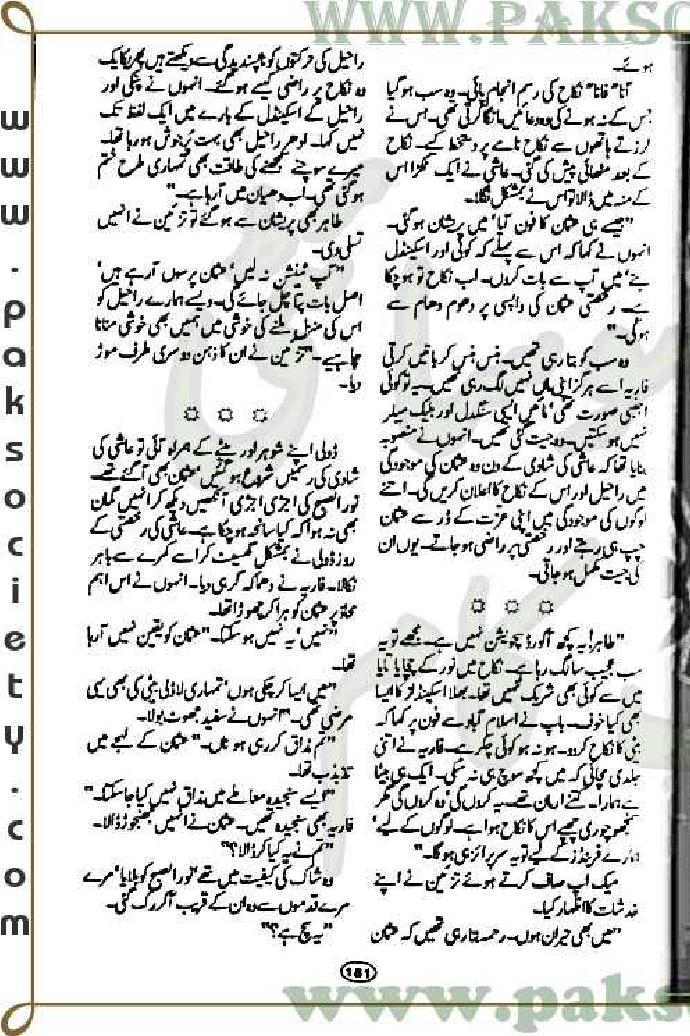 WWW.PAKSO
www.paksociety.com
ہوئے۔
آنا" فانا" نکاح کی رسم انجام پائی۔ وہ سب ہو گیا
جس کے نہ ہونے کی وہ دعائیں مانگا کرتی تھی۔ اس نے
لرزتے ہاتھوں سے نکاح نامے پر دستخط کیے۔ نکاح
کے بعد مٹھائی پیش کی گئی۔ عاشی نے ایک ٹکڑا اس
کے منہ میں ڈالا تو اس نے بمشکل نگلا۔
"جیسے ہی عثمان کا فون آیا' میں پریشان ہو گئی۔
انہوں نے کہا کہ اس سے پہلے کہ کوئی اور اسکینڈل
بنے' میں آپ سے بات کروں۔ اب نکاح تو ہو چکا
ہے۔ رخصتی عثمان کی واپسی پر دھوم دھام سے
ہوگی۔"
وہ سب کو بتا رہی تھیں۔ ہنس ہنس کر باتیں کرتی
فاریہ اسے ہرگز اپنی ماں نہیں لگ رہی تھیں۔ یہ تو کوئی
اجنبی صورت تھی' مائیں ایسی سنگدل اور بلیک میلر
نہیں ہو سکتیں۔ وہ جیت گئی تھیں۔ انہوں نے منصوبہ
بنایا تھا کہ عاشی کی شادی کے دن وہ عثمان کی موجودگی
میں راحیل اور اس کے نکاح کا اعلان کریں گی۔ اتنے
لوگوں کی موجودگی میں اپنی عزت کے ڈر سے عثمان
چپ ہی رہتے اور رخصتی پر راضی ہو جاتے۔ یوں ان
کی جیت مکمل ہو جاتی۔
"طاہر! یہ کچھ آکورڈ سچویشن نہیں ہے۔ مجھے تو یہ
سب عجیب سا لگ رہا ہے۔ نکاح میں نور کے چچا یا تایا
میں سے کوئی بھی شریک نہیں تھا۔ بھلا اسکینڈلز کا ایسا
بھی کیا خوف۔ باپ نے اسلام آباد سے فون پر کہا کہ
بیٹی کا نکاح کر دو۔ ہو نہ ہو کوئی چکر ہے۔ فاریہ نے اتنی
جلدی مچائی کہ میں کچھ سوچ ہی نہ سکی۔ ایک ہی بیٹا
ہے ہمارا۔ کتنے ارمان تھے۔ یہ کروں گی' وہ کروں گی مگر
چوری چھپے اس کا نکاح ہوا ہے۔ لوگوں کے لیے'
ہمارے فرینڈز کے لیے تو یہ سرپرائز ہی ہوگا۔"
میک اپ صاف کرتے ہوئے تزئین نے اپنے
خدشات کا اظہار کیا۔
"میں بھی حیران ہوں۔ رحمہ بتا رہی تھیں کہ عثمان
راحیل کی حرکتوں کو ناپسندیدگی سے دیکھتے ہیں پھر یکایک
وہ نکاح پر راضی کیسے ہو گئے۔ انہوں نے پنکی اور
راحیل کے اسکینڈل کے بارے میں ایک لفظ تک
نہیں کہا۔ ادھر راحیل بھی بہت پرجوش ہو رہا تھا۔
میرے سوچنے سمجھنے کی طاقت بھی تمہاری طرح ختم
ہو گئی تھی۔ اب دھیان میں آ رہا ہے۔"
طاہر بھی پریشان سے ہو گئے تو تزئین نے انہیں
تسلی دی۔
"آپ ٹینشن نہ لیں' عثمان پرسوں آ رہے ہیں'
اصل بات پتا چل جائے گی۔ ویسے ہمارے راحیل کو
اس کی منزل ملنے کی خوشی میں ہمیں بھی خوشی منانا
چاہیے۔" تزئین نے ان کا ذہن دوسری طرف موڑ
دیا۔
ڈولی اپنے شوہر اور بیٹے کے ہمراہ آئی تو عاشی کی
شادی کی رسمیں شروع ہو گئیں، عثمان بھی آ گئے تھے۔
نور الصبح کی اجڑی اجڑی آنکھیں دیکھ کر انہیں گمان
بھی نہ ہوا کہ کیا سانحہ ہو چکا ہے۔ عاشی کی رخصتی کے
روز ڈولی نے بمشکل گھسیٹ کر اسے کمرے سے باہر
نکالا۔ فاریہ نے دھماکہ کر ہی دیا۔ انہوں نے اس اہم
محاذ پر عثمان کو ہرا کر چھوڑا تھا۔
"نہیں' یہ نہیں ہو سکتا۔" عثمان کو یقین نہیں آ رہا
تھا۔
"میں ایسا کر چکی ہوں' تمہاری لاڈلی بیٹی کی بھی یہی
مرضی تھی۔" انہوں نے سفید جھوٹ بولا۔
"تم مذاق کر رہی ہو ناں۔" عثمان کے لہجے میں
تذبذب تھا۔
"ایسے سنجیدہ معاملے میں مذاق نہیں کیا جا سکتا۔"
فاریہ بھی سنجیدہ تھیں۔ عثمان نے انہیں جھنجوڑ ڈالا۔
"تم نے یہ کیا کر ڈالا؟"
وہ شاک کی کیفیت میں تھے' نور الصبح کو بلایا' مرے
مرے قدموں سے وہ ان کے قریب آ کر رک گئی۔
"یہ سچ ہے؟"
181
www.paks